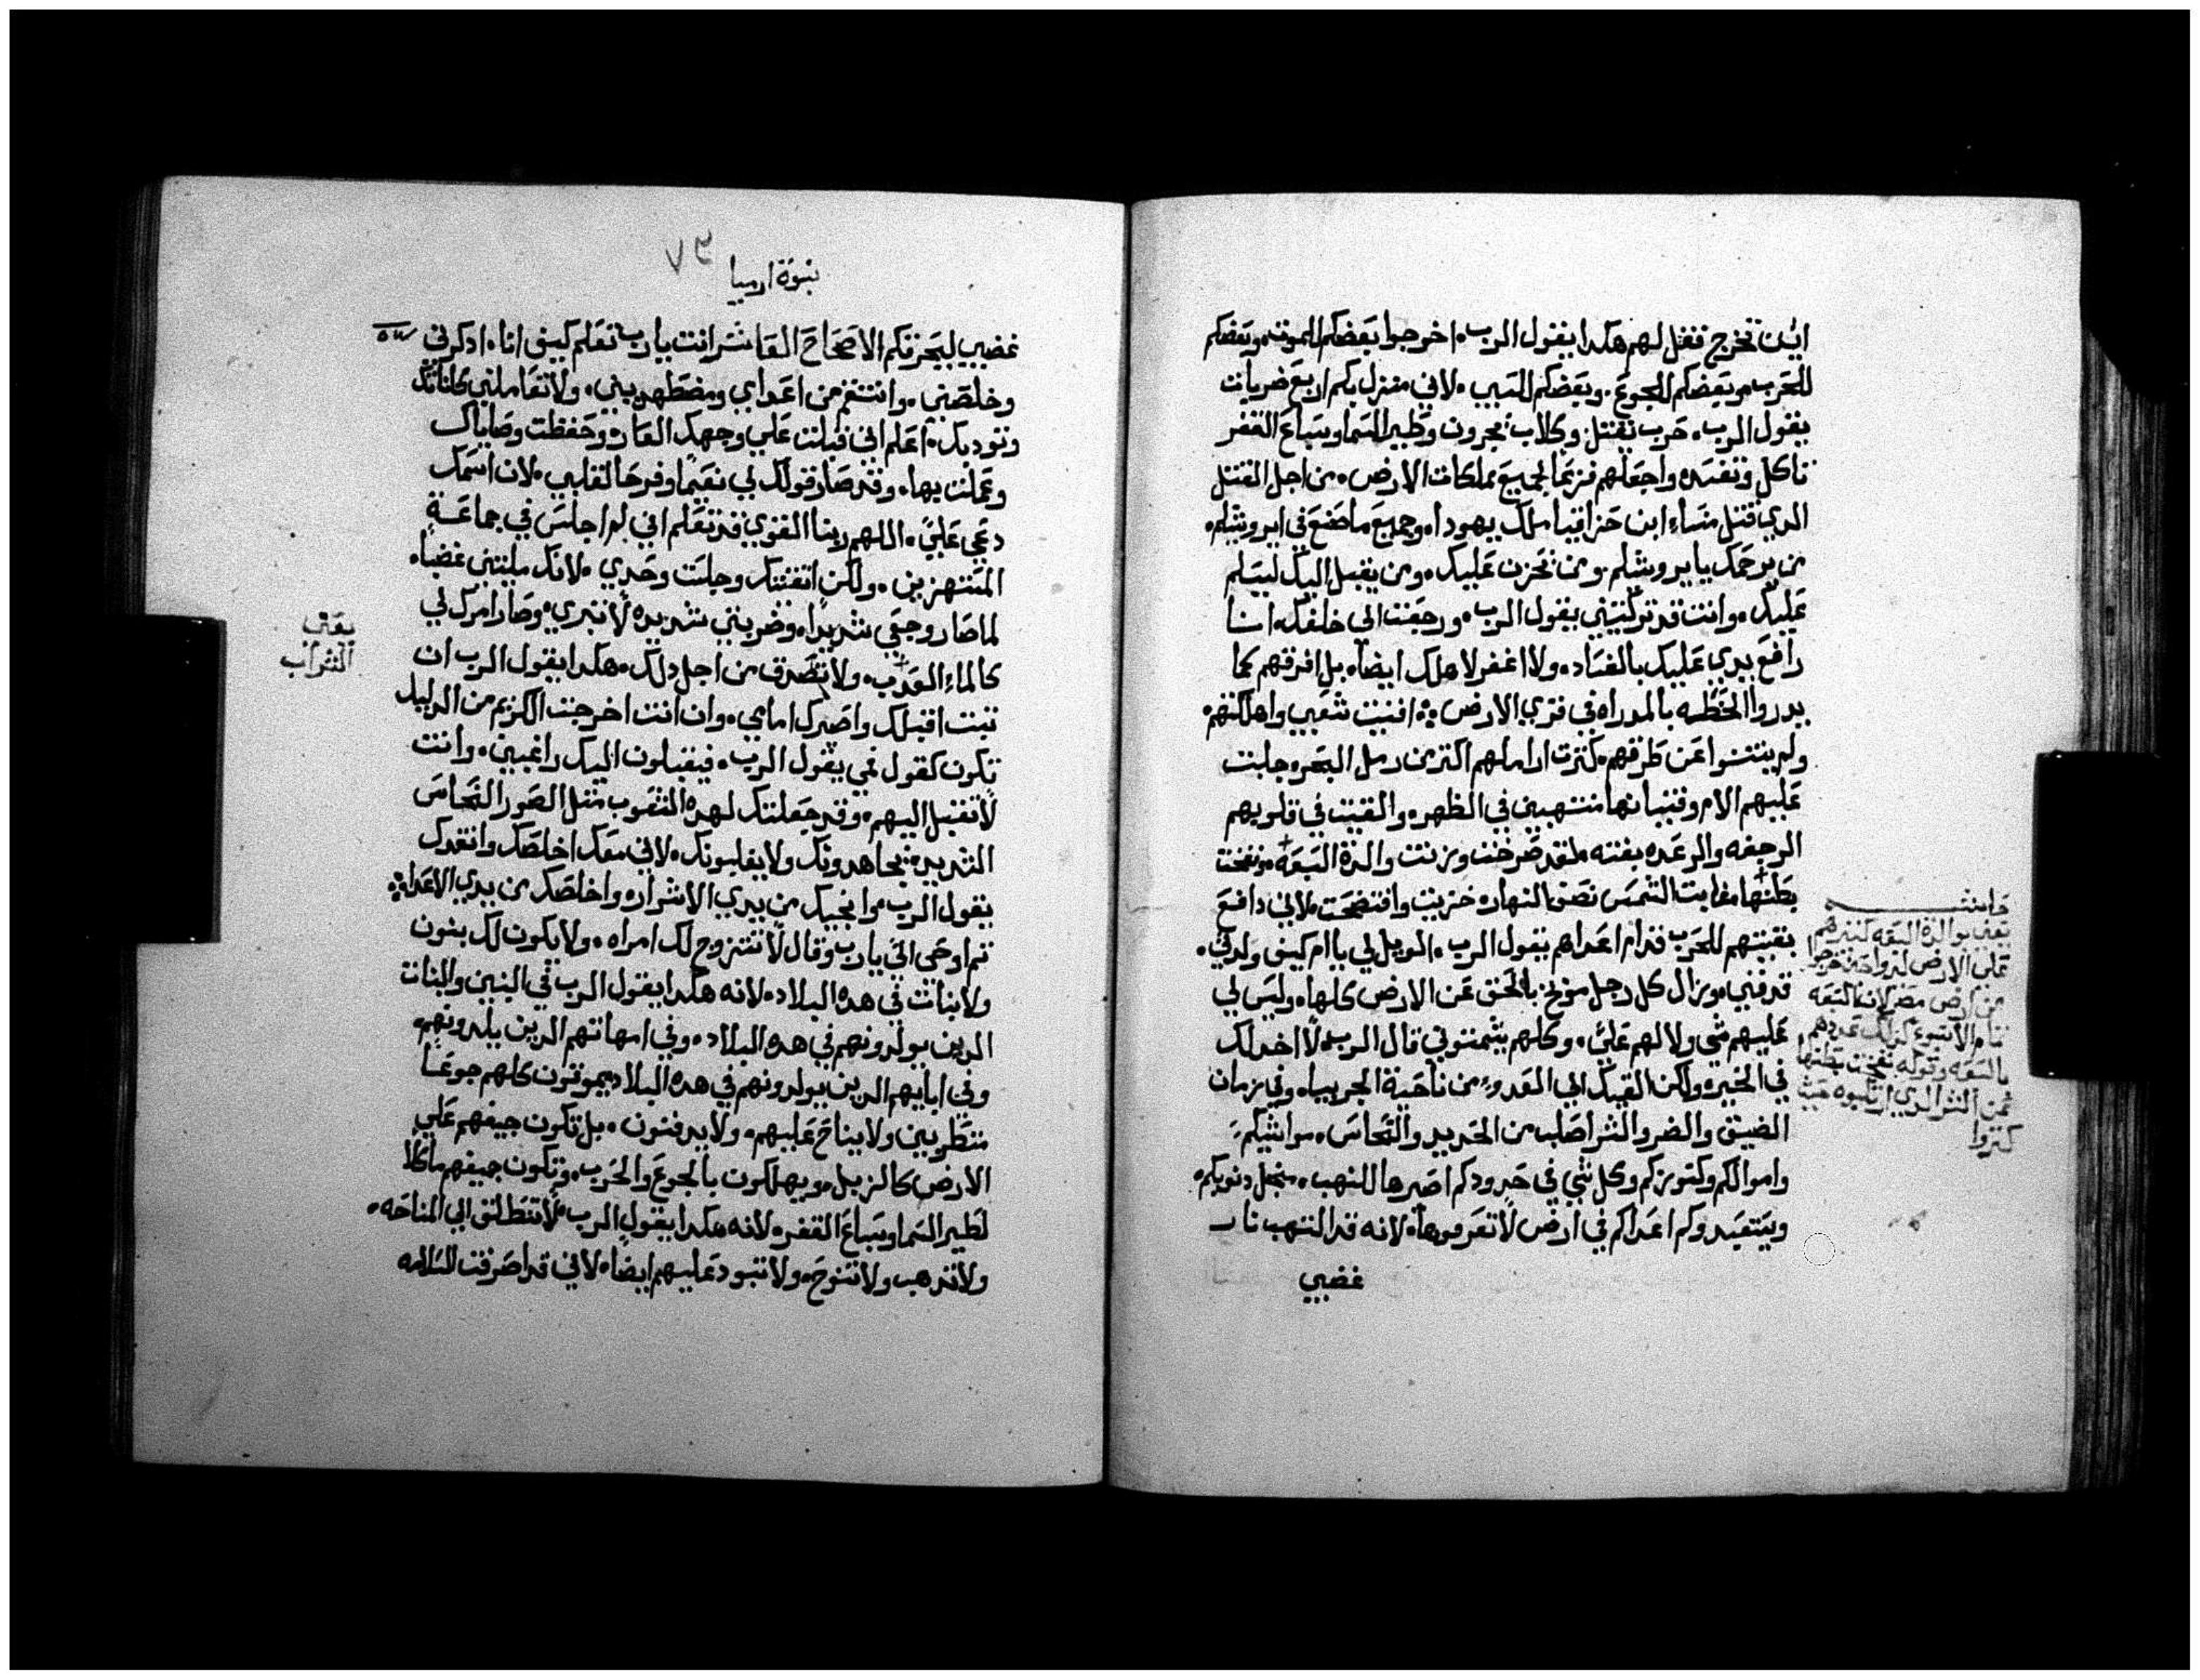 اين نخرج فقل لهم هكدا يقول الرب اخرجوا بعضكم للموت وبعضكم
للحرب وبعضكم للجوع وبعضكم للسبي لاني منزل بكم اربع ضربات
يقول الرب حرب تقتل وكلاب يجرون وطير السما وسباع القفر
تاكل وتفسد واجعلهم فزعا لجميع مملكات الارض من اجل القتل
الدي قتل منسا ابن حزاقيا ملك يهودا وجميع ما صنع في ايروشليم
من يرحمك يا يروشلم ومن يحزن عليك ومن يقبل اليك ليسلم
عليك وانت قد تركتيني يقول الرب ورجعت الي خلفك انا
رافع يدي عليك بالفساد ولا اغفر لاهلك ايضا بل افرقهم كما
يدروا الحنطه بالمدراه في قري الارض افنيت شعبي واهلكتهم
ولم ينتنوا عن طرقهم كترت اراملهم اكتر من رمل البحر وجلبت
عليهم الام وفتيانها منتهبين في الظهره والقيت في قلوبهم
الرجفه والرعده بغته لقد صرخت وزنت والدة السبعه ونفخت
بطنها غابت الشمس نصف النهار خزيت وافتضحت لاني دافع
بقيتهم للحرب قدام اعداهم يقول الرب الويل لي يا ام كيف ولدتي
قد فني وزال كل رجل موخ بالحنق عن الارض كلها وليس لي
عليهم شي ولا لهم علي وكلهم يشتموني قال الرب لا اخدلك
في الخيره ولكن القيك الي العدو من ناحية الجربيا وفي زمان
الضيق والضر والشر اصلب من الحديد والنحاس مواشيكم
واموالكم وكنوزكم وكل شي في حدودكم اصيرها للنهب من اجل دنوبكم
ويستعبدوكم اعداكم في ارض لا تعرفوها لانه قد التهب نار
غضبي
حاشيه
يعني بوالدة السبعه كترهم
علي الارض لنوا حين خرجوا
من ارض مصر لان السبعه
تام الاسبوع كدلك عددهم
بالسبعه وقوله نفخت بطنها
من الشر الدي ارتكبوه حيث
كتروا
نبوة ارميا
غضبي ليحرقكم الاصحاح العاشر انت يا رب تعلم كيف انا ادكرني
وخلصني وانتقم من اعداي ومضطهديني ولا تعاملني باناتك
وتوديك اعلم اني قبلت علي وجهك العار وحفظت وصاياك
وعملت بها وقد صار قولك لي نعيما وفرحا لقلبي لان اسمك
دعي علي اللهم ربنا القوي قد تعلم اني لم اجلس في جماعة
المستهزين ولكن اتقيتك وجلست وحدي لانك مليتني غضبا
لما صار وجعي شديدا وضربتي شديده لا تبري وصار امرك لي
كالماء العدب ولا تصدق من اجل دلك هكدا يقول الرب ان
تبت اقبلك واصيرك امامي وان انت اخرجت الكريم من الدليل
تكون كقول فمي يقول الرب فيقبلون اليك راغبين وانت
لا تقبل اليهم وقد جعلتك لهده الشعوب متل السور النحاس
الشديد يجاهدونك ولا يغلبونك لاني معك اخلصك وانقدك
يقول الرب وانجيك من يدي الاشرار واخلصك من يدي الاعدا
تم اوحي الي يا رب وقال لا تتزوج لك امراه ولا يكون لك بنون
ولا بنات في هده البلاد لانه هكدا يقول الرب في البنين والبنات
الدين يولدونهم في هده البلاد وفي امهاتهم الدين يلدونهم
وفي ابايهم الدين يولدونهم في هده البلاد يموتون كلهم جوعا
متطربين ولا يناح عليهم ولا يدفنون بل تكون جيفهم علي
الارض كالزبل ويهلكون بالجوع والحرب وتكون جيفهم ماكلا
لطير السما وسباع القفر لانه هكدا يقول الرب لا تنطلق الي المناحه
ولا تدهب ولا تنوح ولا تبود عليهم ايضا لاني قد اصرفت السلامه
يعني
الشراب